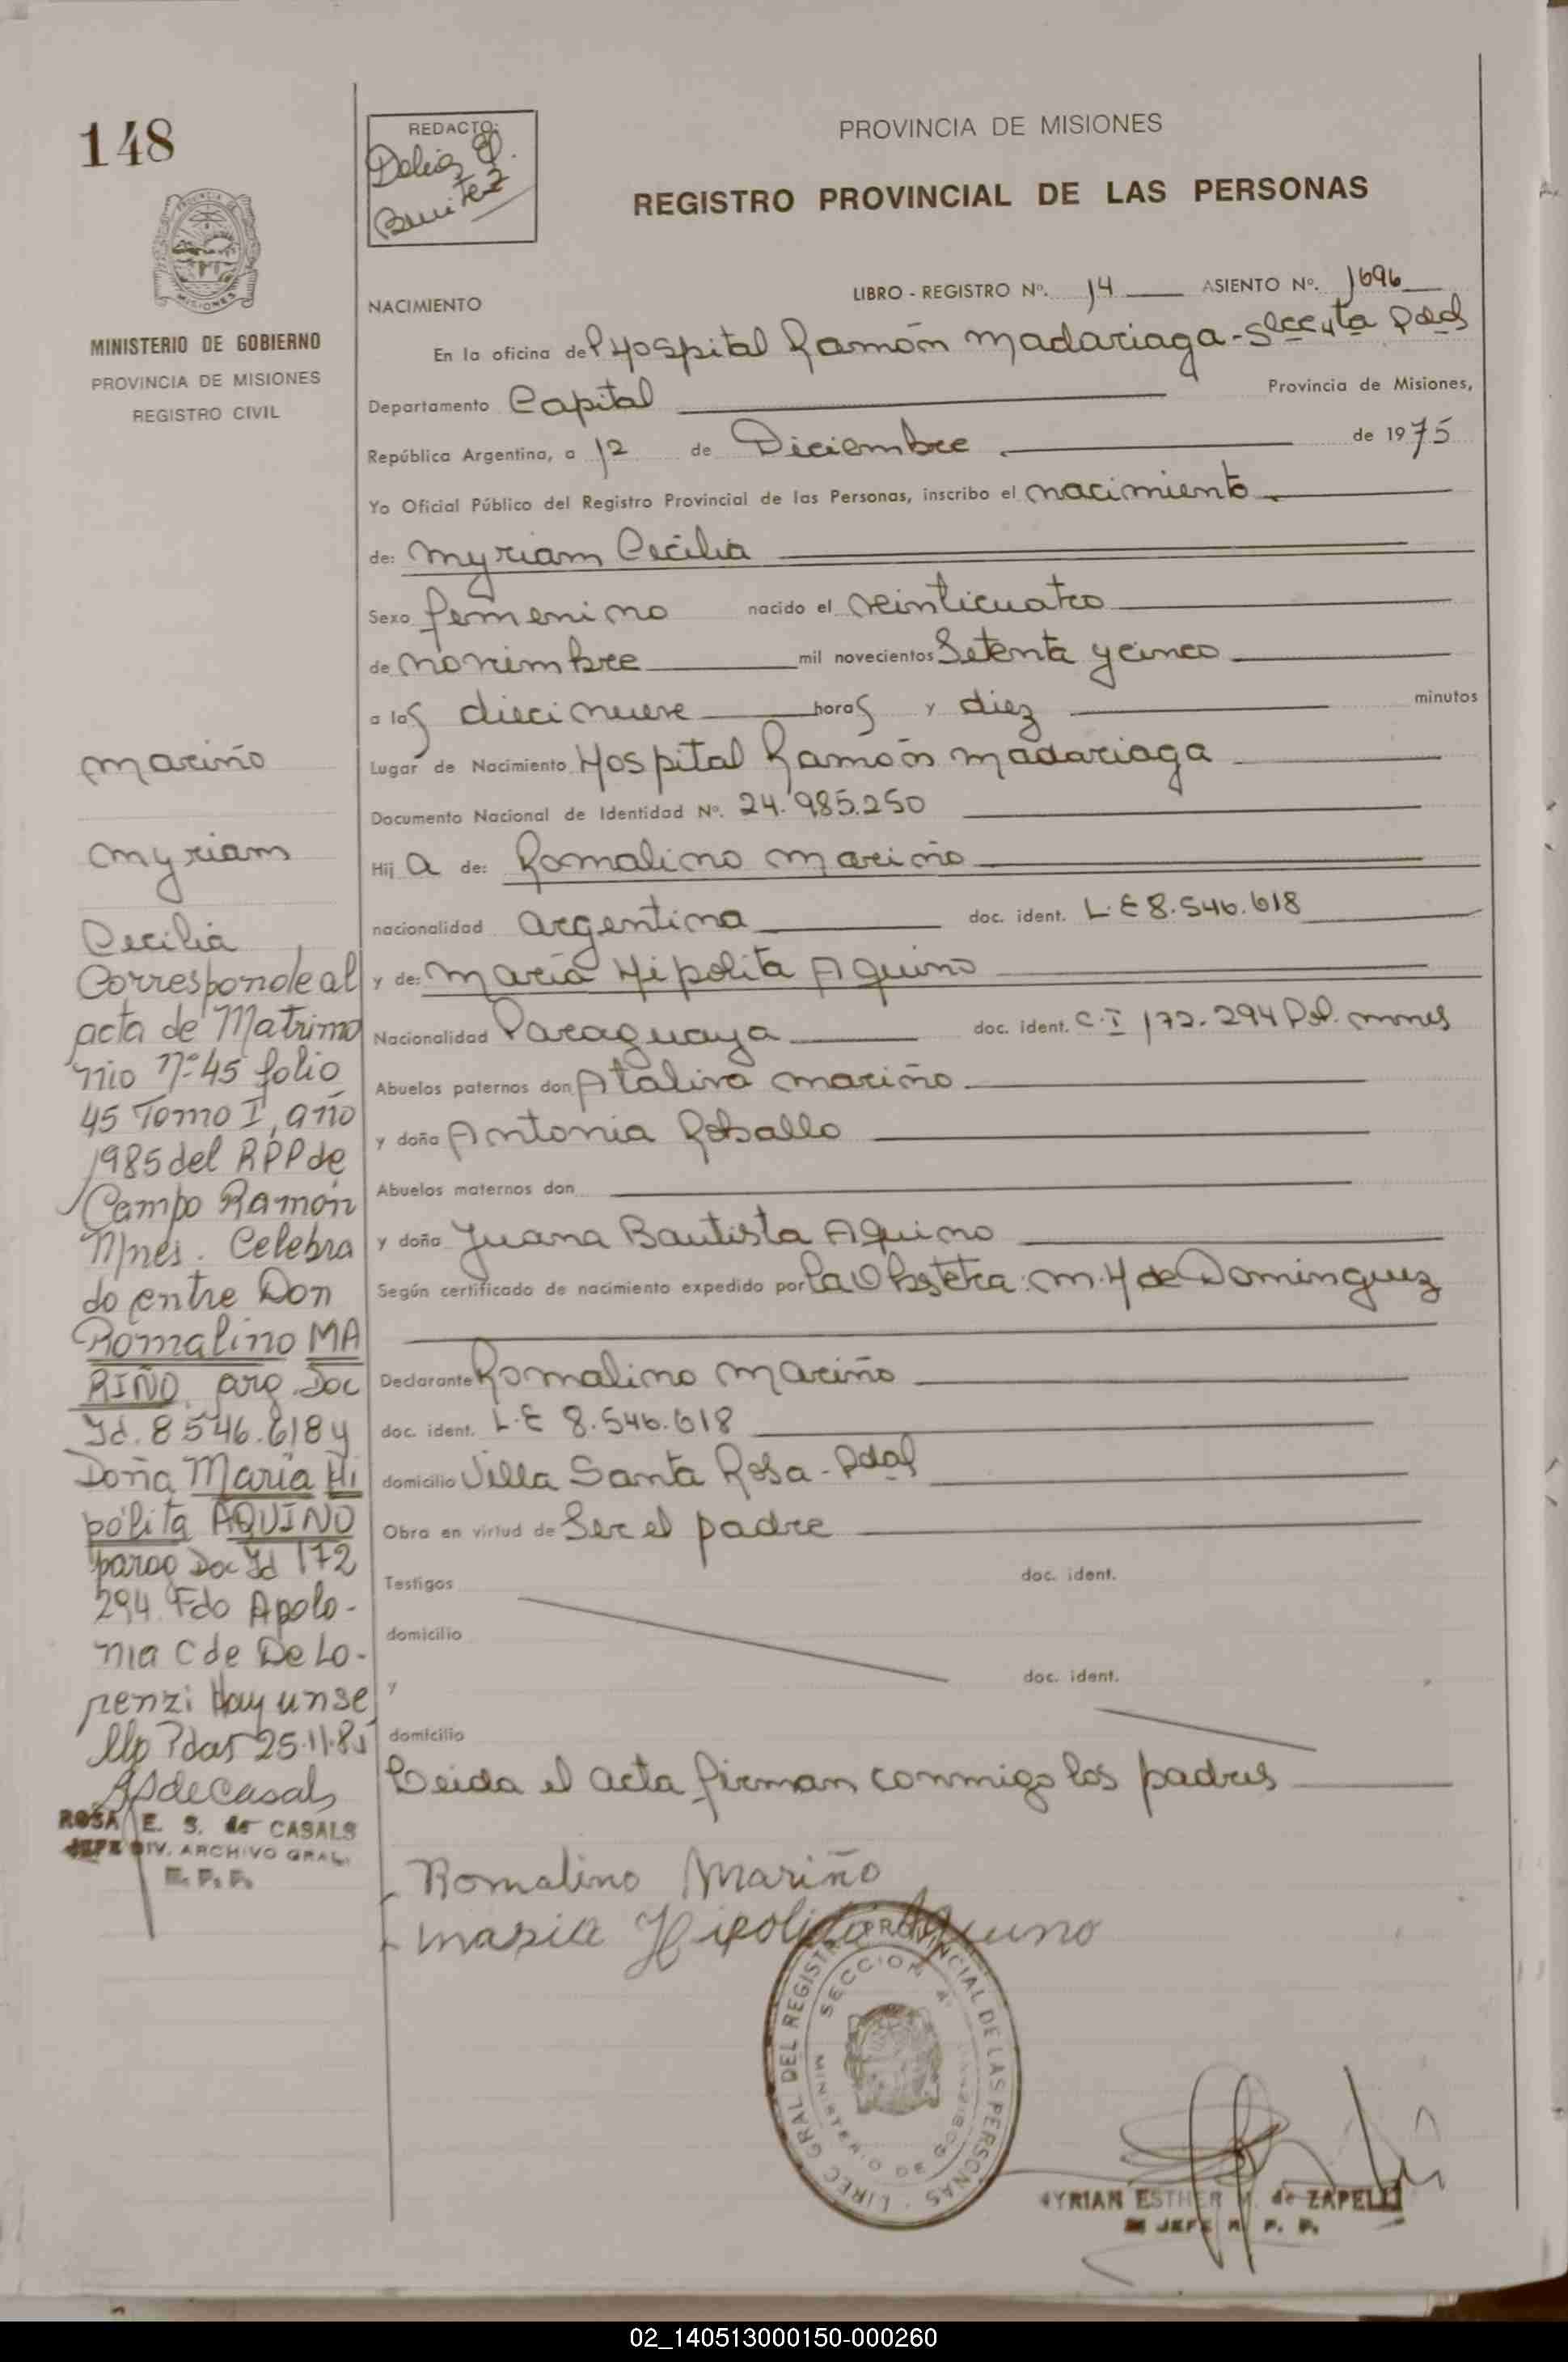 148
REDACTO:
Delia E.
Benitez
PROVINCIA DE MISIONES
REGISTRO PROVINCIAL DE LAS PERSONAS
MINISTERIO DE GOBIERNO
PROVINCIA DE MISIONES
REGISTRO CIVIL
NACIMIENTO
LIBRO - REGISTRO Nº. 14 ASIENTO Nº. 1696
En la oficina del Hospital Ramón Madariaga - Secc 4ta Pdas
Departamento Capital Provincia de Misiones,
República Argentina, a 12 de Diciembre de 1975
Yo Oficial Público del Registro Provincial de las Personas, inscribo el nacimiento
de: Myriam Cecilia
Sexo femenino nacido el veinticuatro
de noviembre mil novecientos Setenta y cinco
a las diecinueve horas y diez minutos
Lugar de Nacimiento Hospital Ramón Madariaga
Documento Nacional de Identidad Nº. 24.985.250
Hija de: Romalino Mariño
nacionalidad argentina doc. ident. L.E 8.546.618
y de: María Hipolita Aquino
Nacionalidad Paraguaya doc. ident. C.I 172.294 Pol. Mnes
Abuelos paternos don Ataliva Mariño
y doña Antonia Roballo
Abuelos maternos don
y doña Juana Bautista Aquino
Según certificado de nacimiento expedido por la Obstetra: M. H de Dominguez
Declarante Romalino Mariño
doc. ident. L.E 8.546.618
domicilio Villa Santa Rosa - Pdas
Obra en virtud de Ser el padre
Testigos doc. ident.
domicilio
y doc. ident.
domicilio
Leida el acta firman conmigo los padres
Romalino Mariño
Maria Hipolita Aquino
Mariño
Myriam
Cecilia
Corresponde al
acta de Matrimo
nio nº 45 folio
45 Tomo I, año
1985 del RPP de
Campo Ramón
Mnes. Celebra
do entre Don
Romalino MA
RIÑO arg. Doc
Id. 8546.618 y
Doña María Hi
pólita AQUINO
parag Doc Id 172
294 Fdo Apolo-
nia C de De Lo-
renzi Hay un se
llo Pdas 25.11.85
RSdeCasals
ROSA E. S. de CASALS
JEFE DIV. ARCHIVO GRAL.
R. P. P.
DIREC GRAL DEL REGISTRO PROVINCIAL DE LAS PERSONAS
SECCION 4ª
MINISTERIO DE GOBIERNO
MYRIAN ESTHER de ZAPELLI
JEFE R. P. P.
02_140513000150-000260